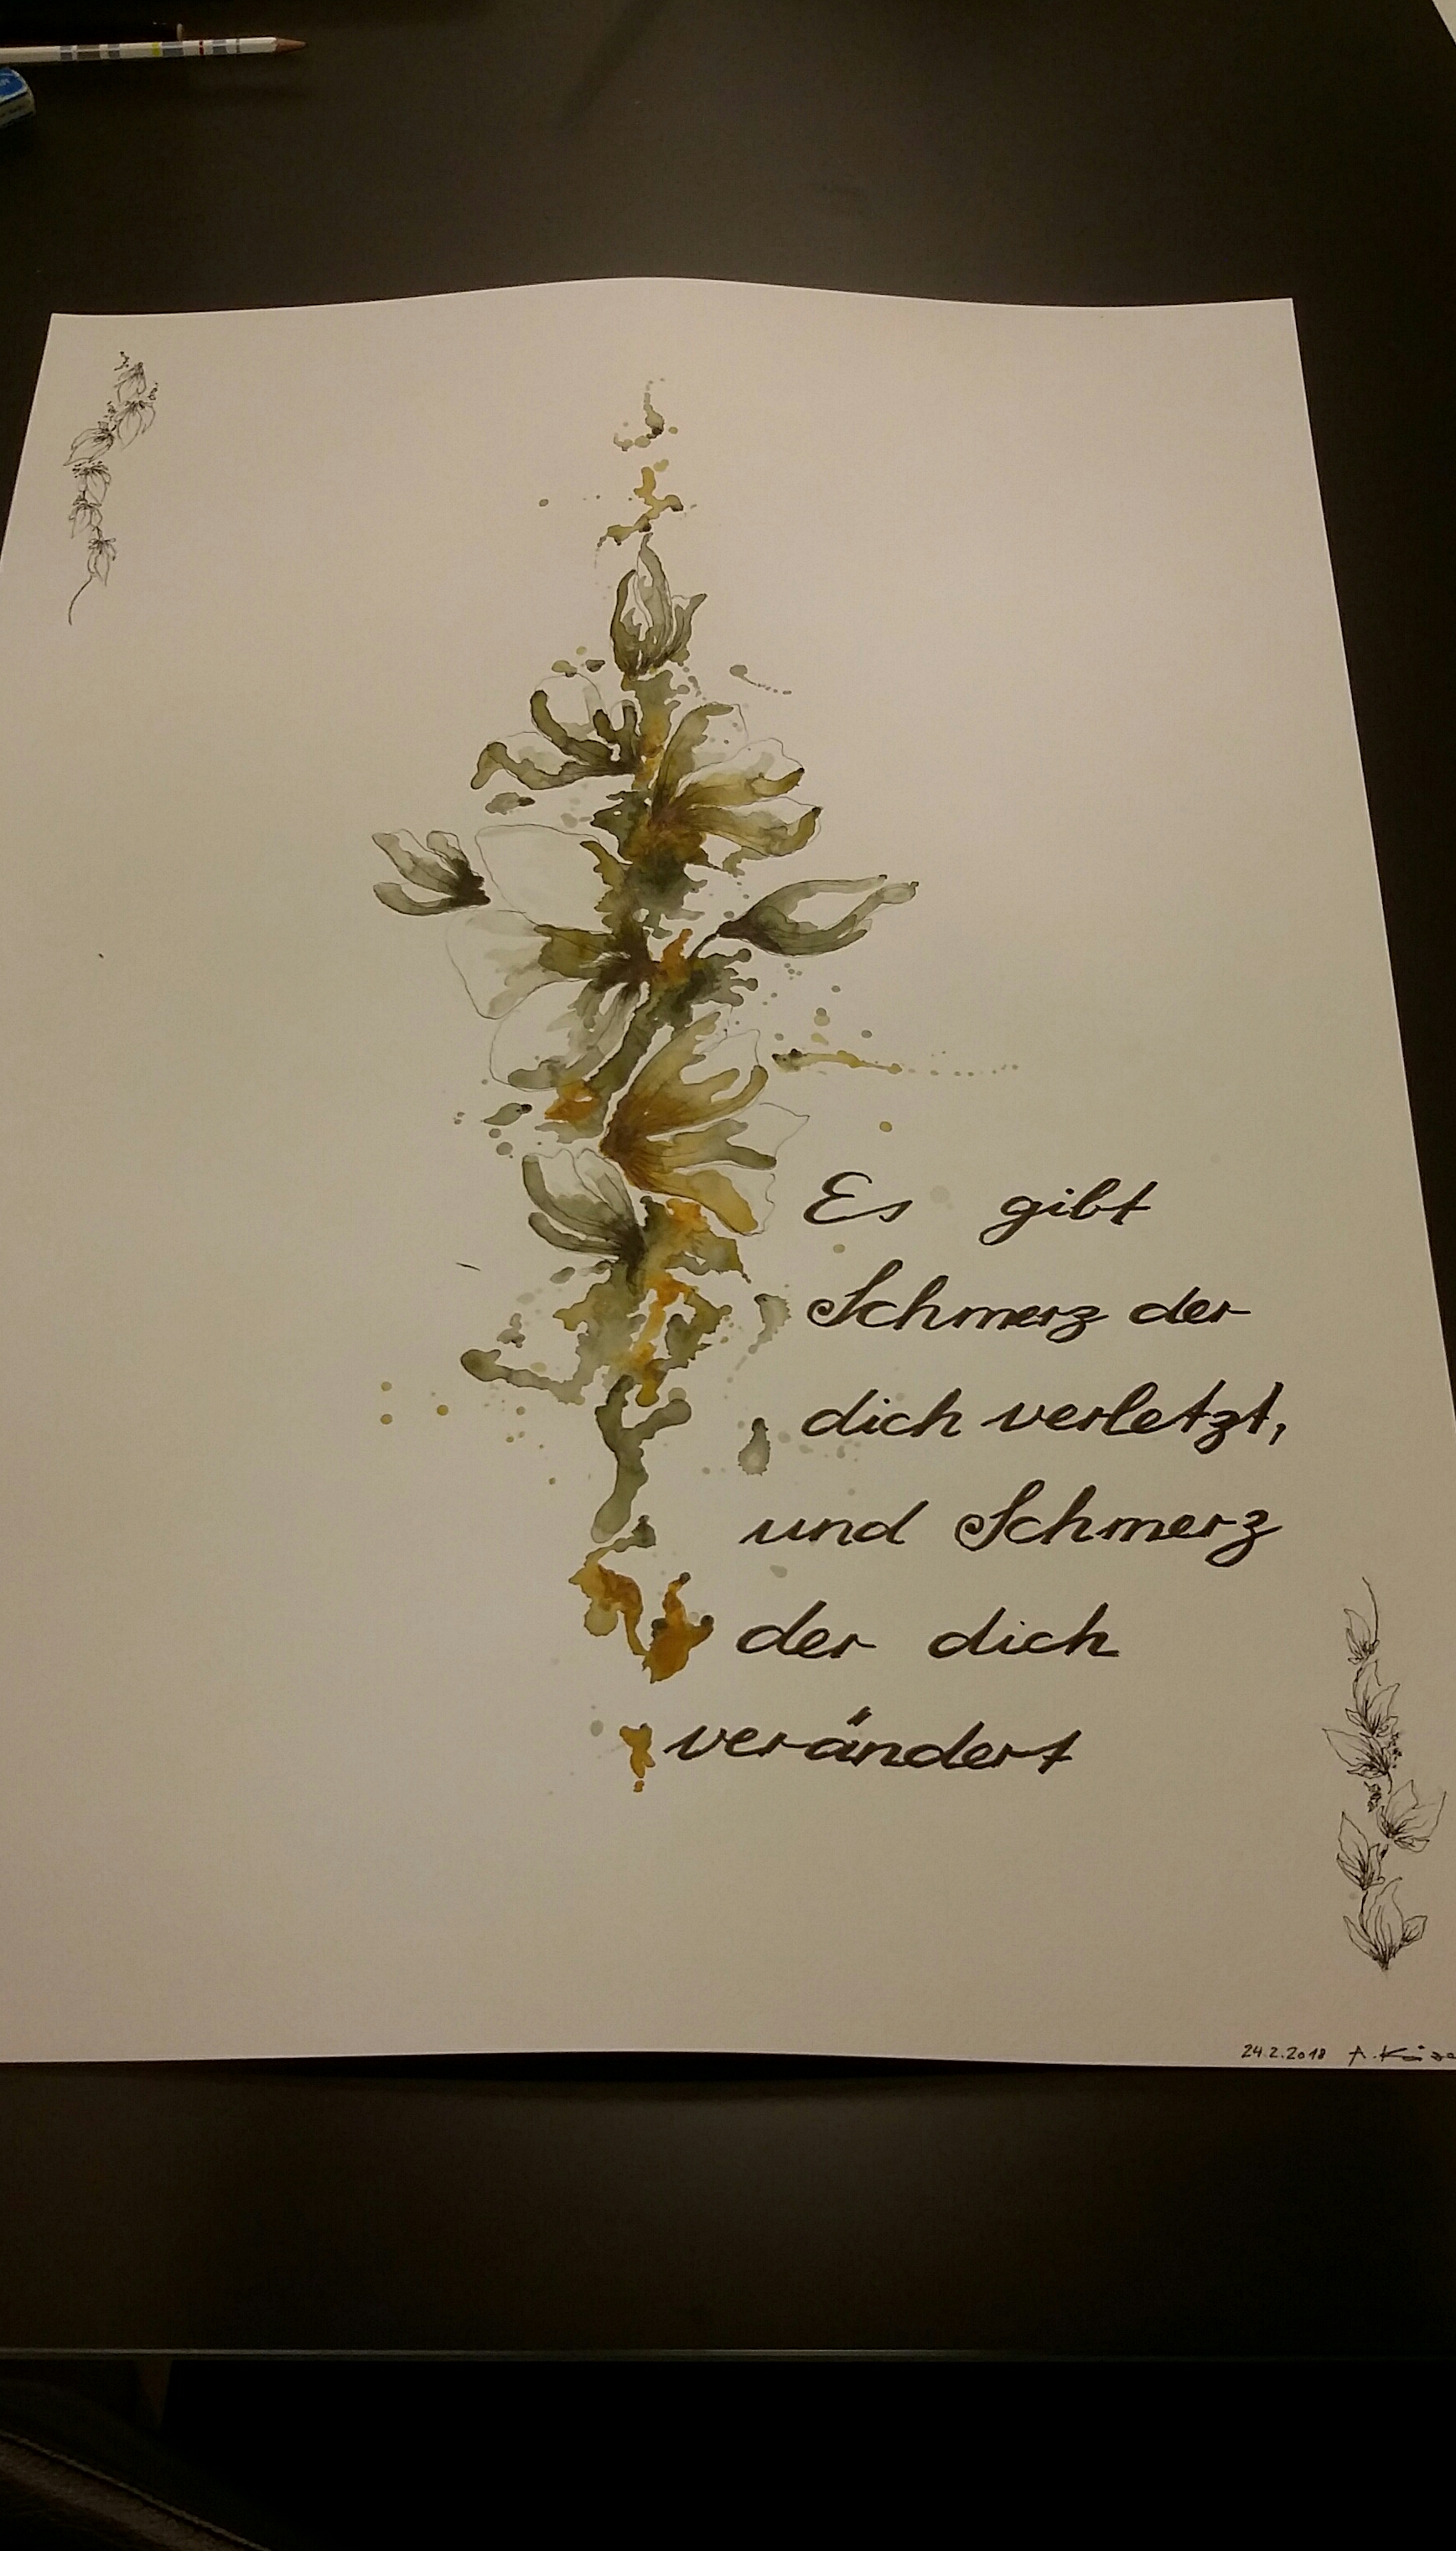 Es gibt
Schmerz der
dich verletzt,
und Schmerz
der dich
verändert
24.2.2018 A.